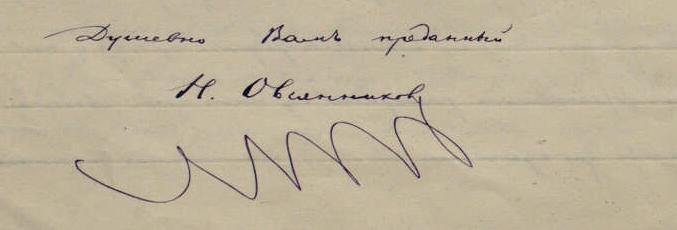 Душевно Вамъ преданный
Н. Овсянников